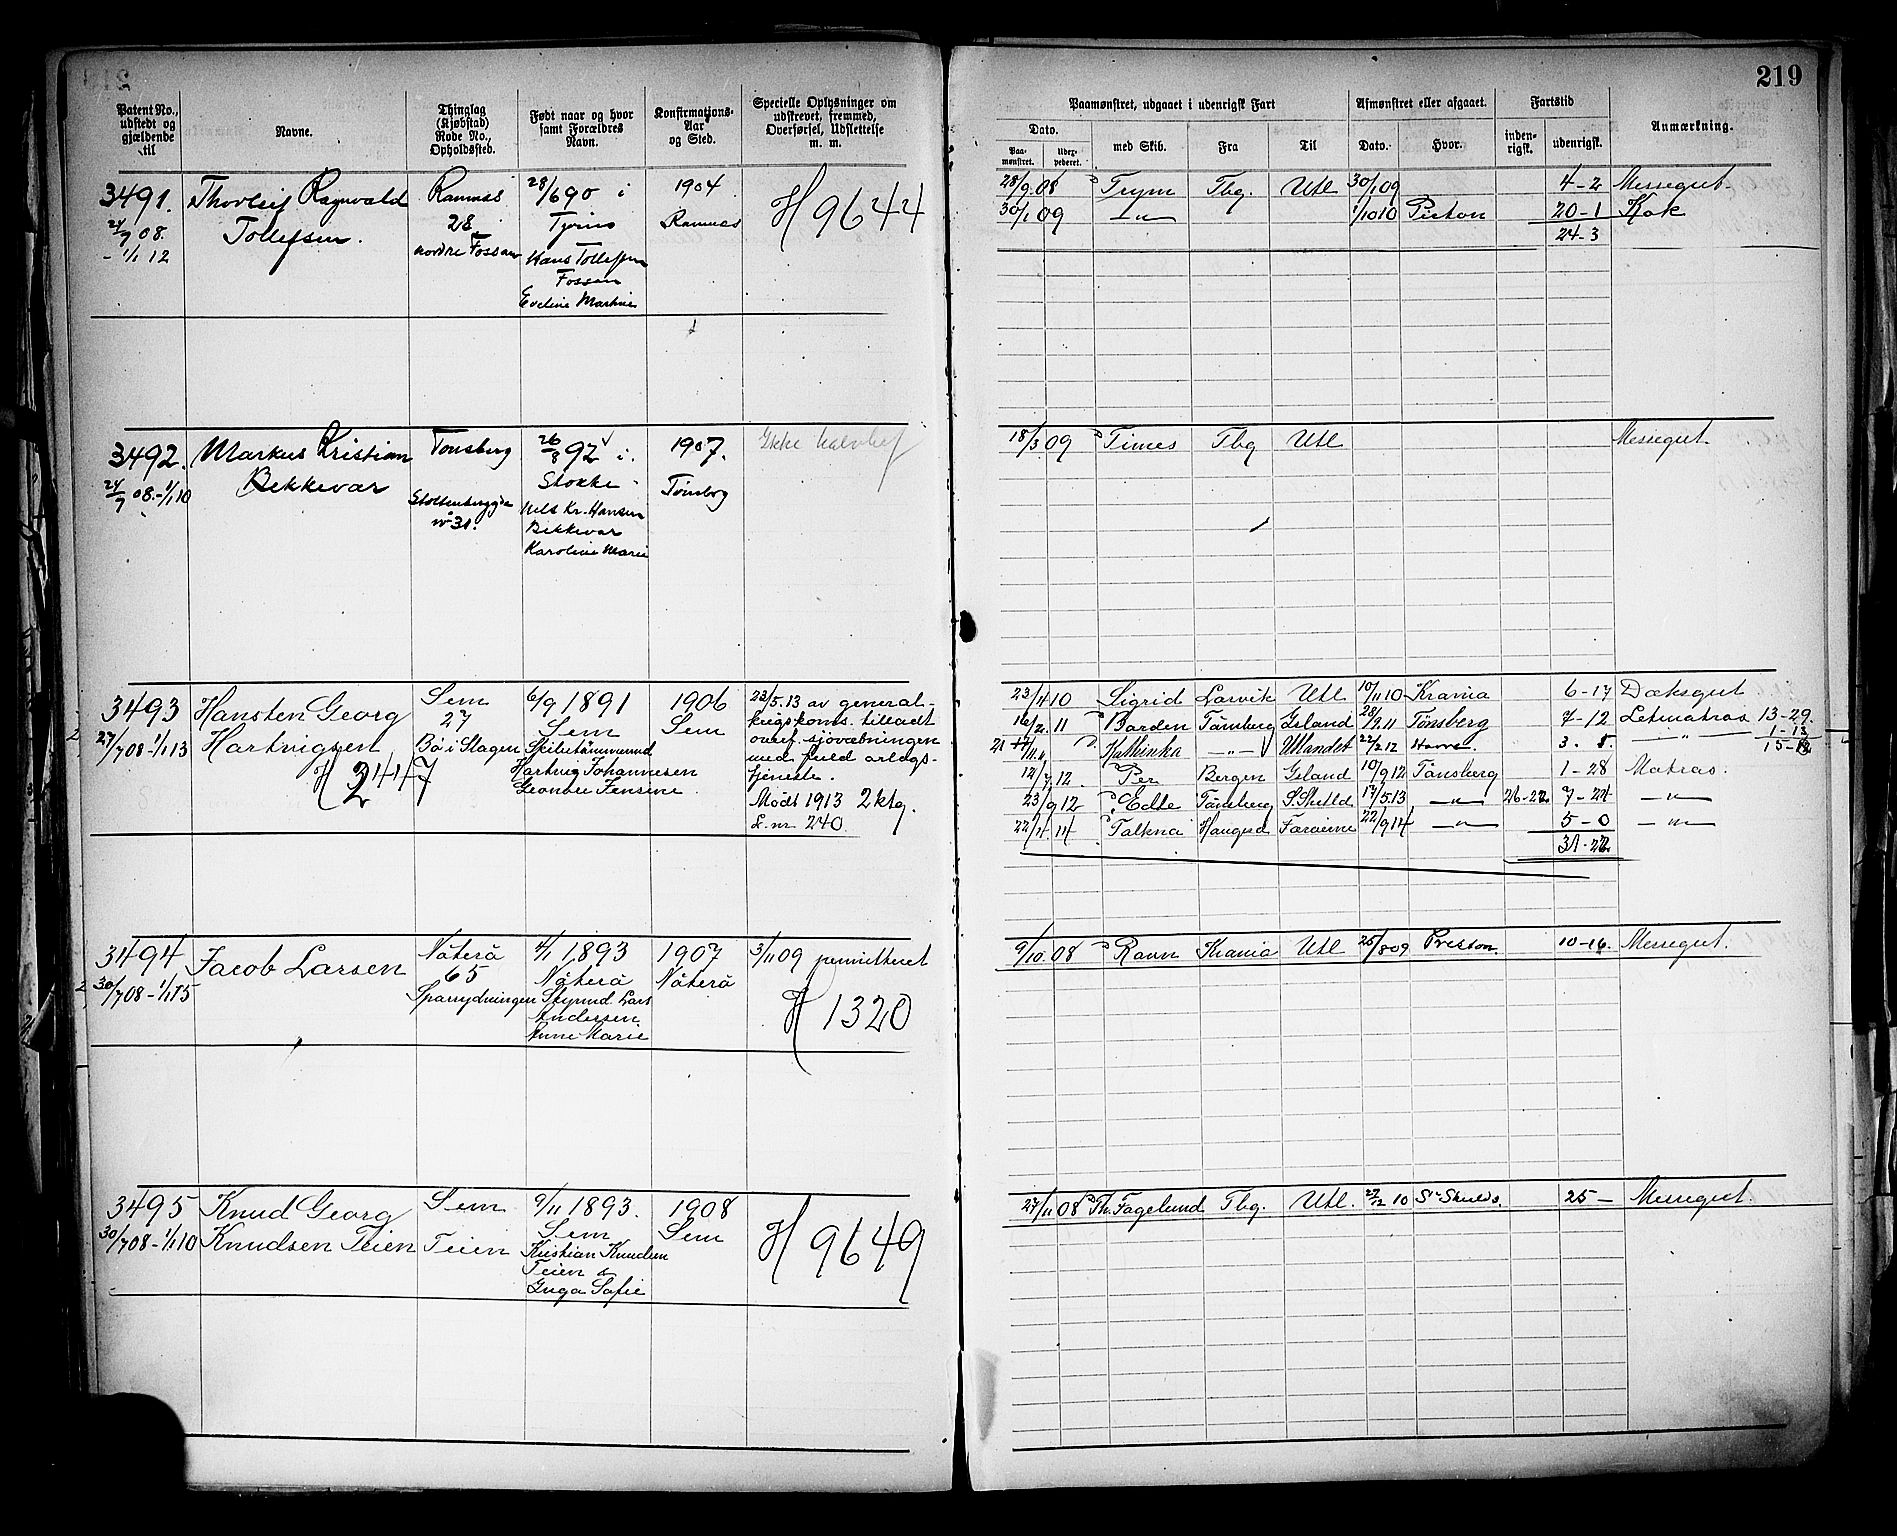 219
Patent No., udstedt og gjældende til
Navne.
Thinglag (Kjøbstad) Rode No., Opholdssted.
Født naar og hvor samt Forældres Navn.
Konfirmations-Aar og Sted.
Specielle Oplysninger om udskrevet, fremmed, Overførsel, Udslettelse m. m.
Paamønstret, udgaaet i udenrigsk Fart
Afmønstret eller afgaaet.
Fartstid
Anmærkning.
Dato.
Paa-mønstret.
med Skib.
Fra
Til
Dato.
Hvor.
inden-rigsk.
udenrigsk.
3491. Thorleif Ragnvald Ramnes 28/6 90 i 1904 H 9644
24/7 08. Tollefsen. 28 Tjømø Ramnes
- 1/1 12 nordre Fossan Hans Tollefsen
Fossan
Eveline Martine
28/9 08 Trym Tbg. Utl 30/1 09 4-2 Messegut
30/1 09 -"- 1/10 10 Picton 20-1 Kok
24-3
3492. Markus Kristian Tønsberg 26/8 92 i 1907. Ikke halvbef
24/7 08.-1/1 10 Bekkevar Stokke Tønsbg
Stoltenbergg
no 31. Nils Kr. Hansen
Bekkevar
Karoline Marie
18/3 09 Times Tbg Utl Messegut
3493 Hansten Georg Sem 6/9 1891 1906 23/5.13 av general-
27/7 08-1/1 13 Hartvigsen 27 Sem Sem krigskoms. tilladt
H 2447 Bø i Slagen Skibstømmermd overf. sjøvæbningen
Hartvig Johannesen med fuld orlogs-
Jensine. tjeneste.
Mødt 1913 2 ktg.
L. nr. 240
23/4 10 Sigrid Larvik Utl 10/11 10 Krania 6-17 Dæksgut
16/2. 11 Barden Tønsberg Island 28/9.11 Tønsberg 7-12 Letmatros 13-29
Kathinka -"- Utlandet 22/2 12 Havre 3. 8. -"- 1-13
15-12
12/7 12. Per Bergen Island 10/9 12 Tønsberg 1-28 Matros.
23/9 12 Edle Tønsberg S. Shetld 17/5.13 -"- 26-22 7-24 -"-
22/4 14 Falkna Haugesd Færøerne 22/9 14 -"- 5-0 -"-
31-22
3494 Jacob Larsen Nøterø 4/1 1893 1907 3/11 09 permitteret
30/7 08-1/1 15 65 Nøterø Nøterø
Sparrydningen Styrmd. Lars H 1320
Andersen
Anne Marie
9/10 08 Ravn Krania Utl 25/8 09 Preston. 10-16. Messegut.
3495 Knud Georg Sem 9/11 1893. 1908 H 9649
30/7 08-1/1 10 Knudsen Teien Teien Sem Sem
Kristian Knudsen
Teien &
Inga Sofie
27/11 08 Th. Fagelund Tbg. Utl. 27/12 10 St. Shields. 25- Messegut.